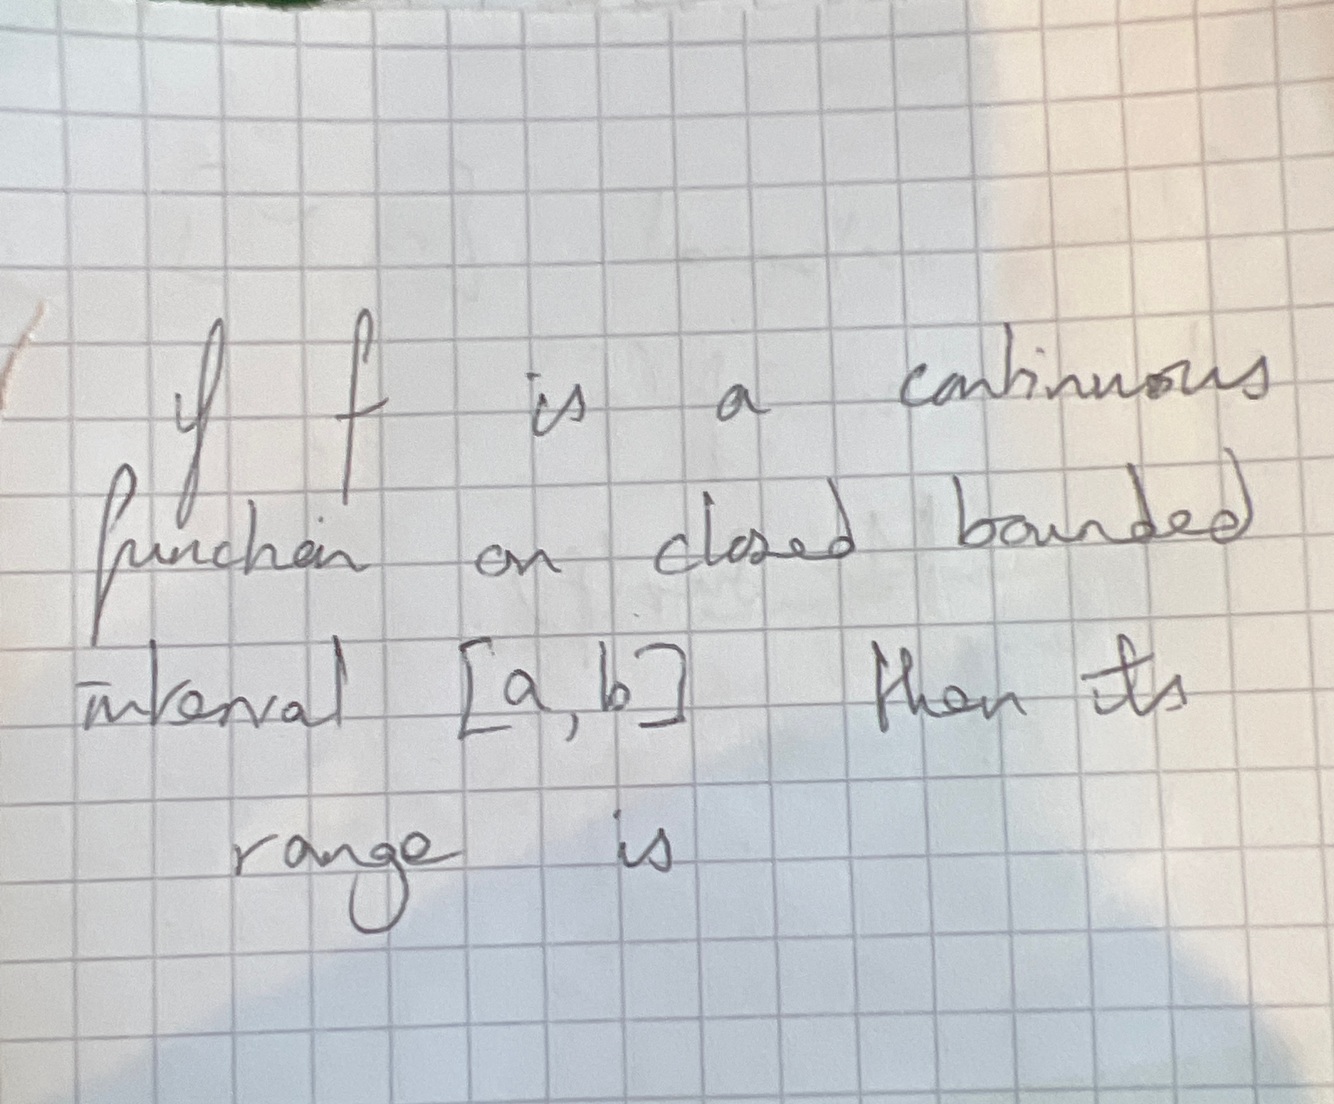 If f is a continuous
function on closed bounded
interval [a, b] then its
range is